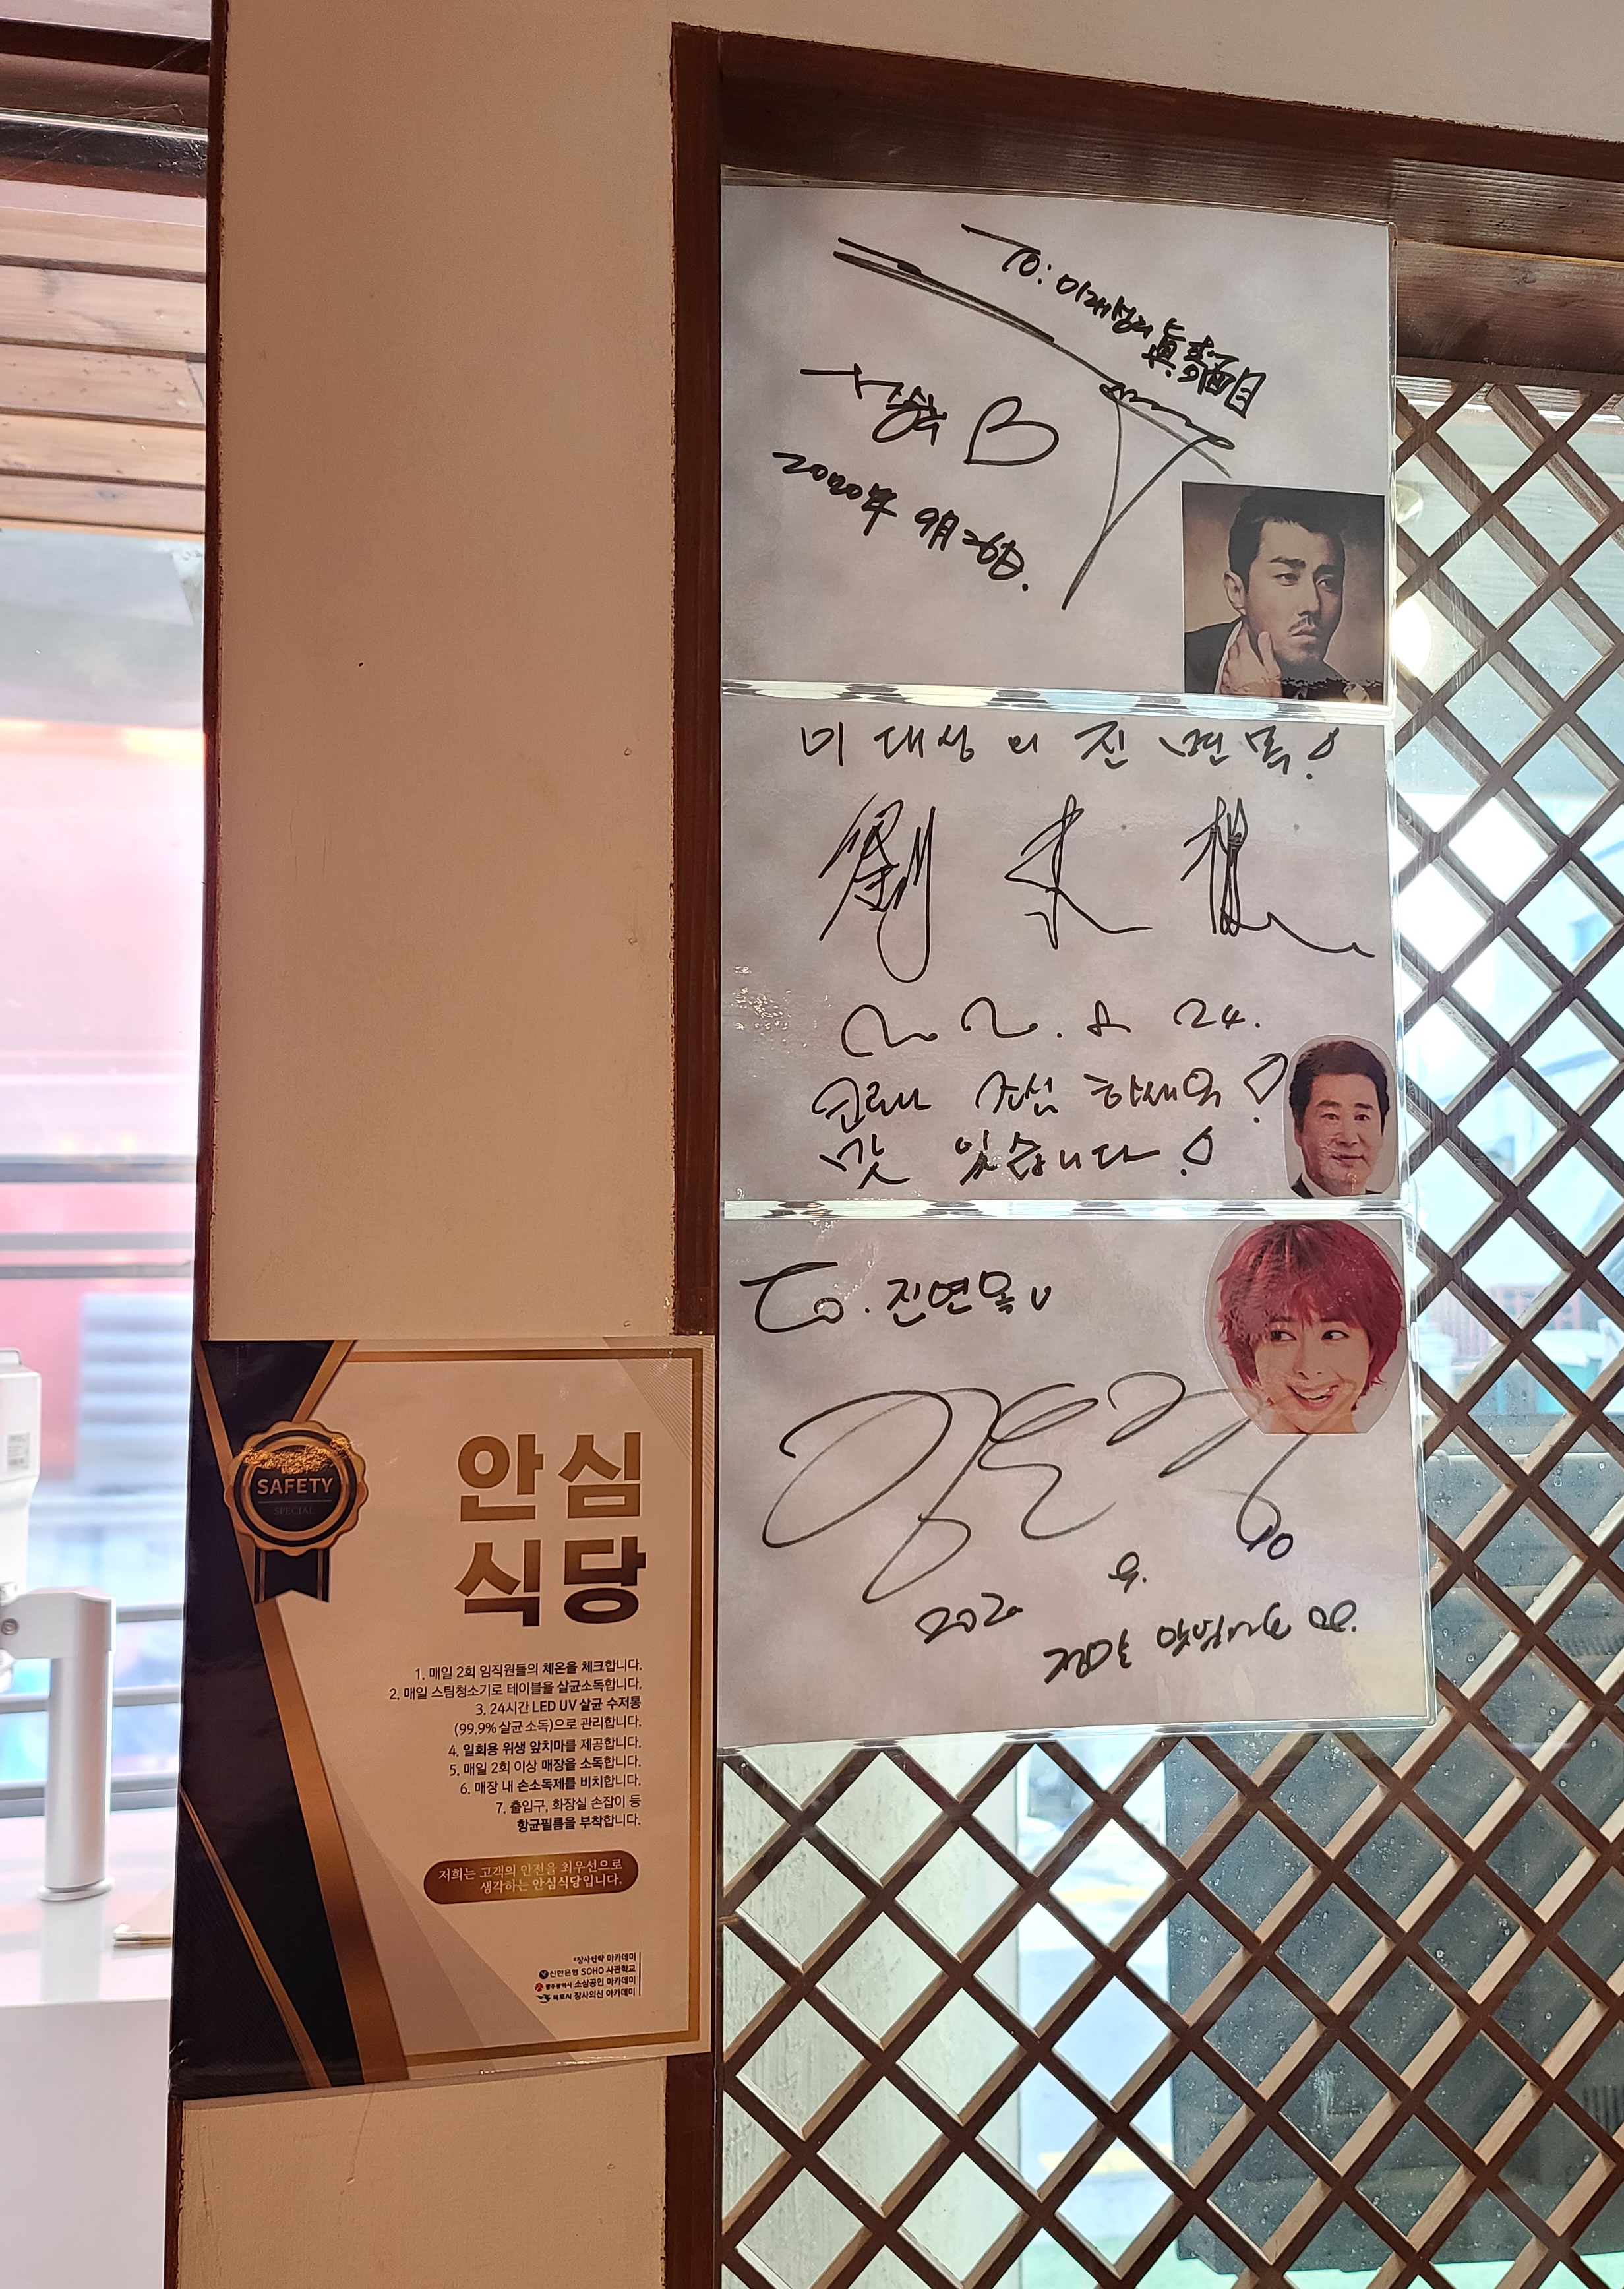 To: 미대성의 眞面目
2020年 9月 26日.
미대성의 진면목!
劉
24.
코로나 조심 하세요!
맛 있습니다!
To. 진면목
2020 9. 10
정말 맛있어요
SAFETY
SPECIAL
안심
식당
1. 매일 2회 임직원들의 체온을 체크합니다.
2. 매일 스팀청소기로 테이블을 살균소독합니다.
3. 24시간 LED UV 살균 수저통
(99.9% 살균 소독)으로 관리합니다.
4. 일회용 위생 앞치마를 제공합니다.
5. 매일 2회 이상 매장을 소독합니다.
6. 매장 내 손소독제를 비치합니다.
7. 출입구, 화장실 손잡이 등
항균필름을 부착합니다.
저희는 고객의 안전을 최우선으로
생각하는 안심식당입니다.
장사전략 아카데미
신한은행 SOHO 사관학교
광주광역시 소상공인 아카데미
목포시 장사의신 아카데미